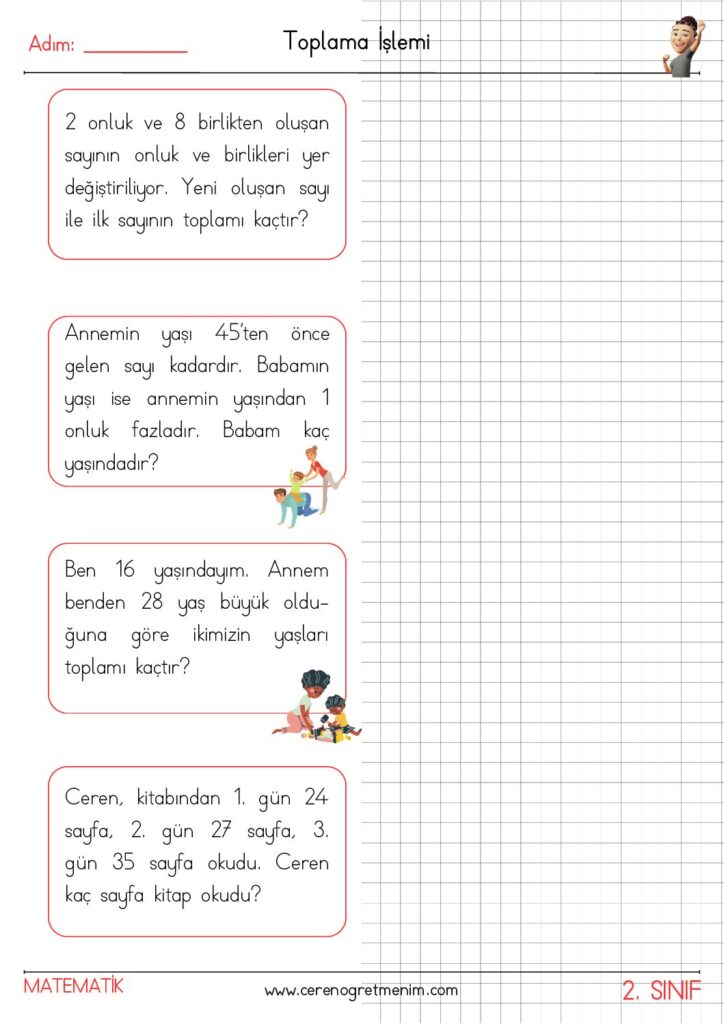 Adım: __________
Toplama İşlemi
2 onluk ve 8 birlikten oluşan
sayının onluk ve birlikleri yer
değiştiriliyor. Yeni oluşan sayı
ile ilk sayının toplamı kaçtır?
Annemin yaşı 45'ten önce
gelen sayı kadardır. Babamın
yaşı ise annemin yaşından 1
onluk fazladır. Babam kaç
yaşındadır?
Ben 16 yaşındayım. Annem
benden 28 yaş büyük oldu-
ğuna göre ikimizin yaşları
toplamı kaçtır?
Ceren, kitabından 1. gün 24
sayfa, 2. gün 27 sayfa, 3.
gün 35 sayfa okudu. Ceren
kaç sayfa kitap okudu?
MATEMATİK
www.cerenogretmenim.com
2. SINIF